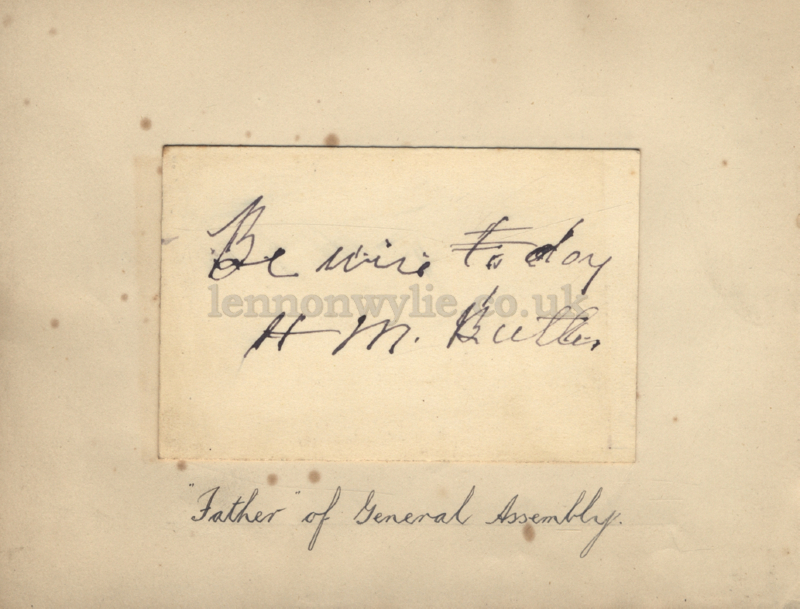 Be wise to day
lennonwylie.co.uk
H M. Butler
"Father" of General Assembly.